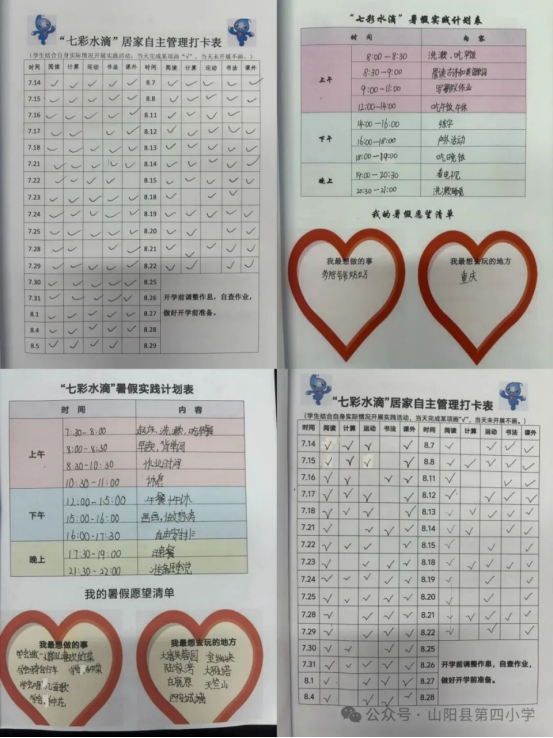 “七彩水滴”居家自主管理打卡表
(学生结合自身实际情况开展实践活动，当天完成某项画“√”，当天未开展不画。)
时间 阅读 计算 运动 书法 课外 时间 阅读 计算 运动 书法 课外
7.14 8.7
7.15 8.8
7.16 8.11
7.17 8.12
7.18 8.13
7.21 8.14
7.22 8.15
7.23 8.18
7.24 8.19
7.25 8.20
7.28 8.21
7.29 8.22
7.30 8.25
7.31 8.26 开学前调整作息，自查作业，
8.1 8.27 做好开学前准备。
8.4 8.28
8.5 8.29
“七彩水滴”暑假实践计划表
时 间 内 容
上午
8:00-8:30 洗漱、吃早饭
8:30-9:00
9:00-11:00 写暑假作业
12:00-14:00 吃午饭,午休
下午
14:00-16:00 练字
16:00-18:00 户外活动
18:00-19:00 吃晚饭
晚上
19:00-20:30 看电视
20:30-21:00 洗漱睡觉
我的暑假愿望清单
我最想做的事
我最想去玩的地方
重庆
“七彩水滴”暑假实践计划表
时 间 内 容
上午
7:30-8:00 起床、洗漱、吃早餐
8:00-8:30
8:30-10:30 作业时间
10:30-11:00 休息
下午
12:00-15:00 午餐、午休
15:00-16:00
16:00-17:30 自由安排
晚上
17:30-19:00 晚餐
21:30-22:00
我的暑假愿望清单
我最想做的事
我最想去玩的地方
白鹿原
天竺山
“七彩水滴”居家自主管理打卡表
(学生结合自身实际情况开展实践活动，当天完成某项画“√”，当天未开展不画。)
时间 阅读 计算 运动 书法 课外 时间 阅读 计算 运动 书法 课外
7.14 8.7
7.15 8.8
7.16 8.11
7.17 8.12
7.18 8.13
7.21 8.14
7.22 8.15
7.23 8.18
7.24 8.19
7.25 8.20
7.28 8.21
7.29 8.22
7.30 8.25
7.31 8.26 开学前调整作息，自查作业，
8.1 8.27 做好开学前准备。
8.4 8.28
公众号·山阳县第四小学